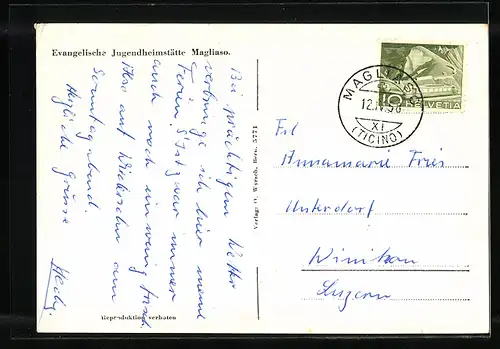 Evangelische Jugendheimstätte Magliaso.
Bei prächtigem Wetter
verbringe ich hier meine
Ferien, s'ist zwar immer
auch noch ein wenig frisch.
Also auf Wiedersehn am
Sonntagabend.
Herzliche Grüsse
Hedy.
Verlag O. Wyrsch, Bern. 5771
Reproduktion verboten
MAGLIASO
12.IV.5
XI
(TICINO)
10
HELVETIA
Frl
Annamarie Fries
Unterdorf
Winikon
Luzern